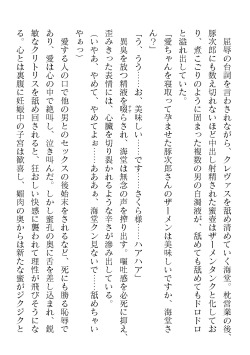 屈辱の台詞を言わされながら、クレヴァスを舐め清めていく海堂。枕営業の後、
豚次郎にも数え切れないほど中出し射精された蜜壺はザーメンタンクと化してお
り、煮こごりのように固まった複数の男の白濁液が、舐めても舐めてもドロドロ
と溢れ出していた。
「愛ちゃんを寝取って孕ませた豚次郎さんのザーメンは美味しいですか、海堂さ
ん？」
「う、うう……お、美味しい……です……さくら様……ハアハア」
異臭を放つ精液を啜らされ、海堂は無念の声を搾り出す。嘔吐感を必死に堪え、
歪みきった表情には、心臓を切り裂かれるような辛さが滲み出している。
（いやあ、やめて、やめてよぉ……あああぁ、海堂クン見ないで……舐めちゃい
やぁっ）
愛する人の口で他の男とのセックスの後始末をされるなど、死にも勝る恥辱で
あり、愛は心の中で絶叫し、泣き叫んだ。しかし蜜孔の奥に舌を差し込まれ、鋭
敏なクリトリスを舐め回されると、狂おしい快感に襲われて理性が飛びそうにな
る。心とは裏腹に妊娠中の子宮は歓喜し、媚肉の奥からは新たな蜜がジクジクと